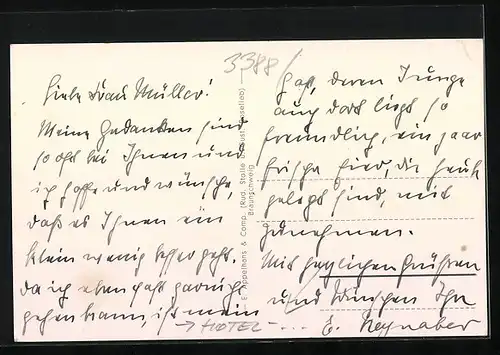 3388
Liebe Frau Müller!
Meine Gedanken sind
so oft bei Ihnen und
ich hoffe und wünsche,
daß es Ihnen ein
klein wenig besser geht.
Da ich eben fast garnicht
gehen kann, ist mein
→ HOTEL - ...
E. Appelhans & Comp. (Rud. Stolle Gustav Roselieb)
Braunschweig
Gast, deren Junge
auch dort liegt so
freundlich, ein paar
frische Eier, die heute
gelegt sind, mit
zunehmen.
Mit herzlichen Grüßen
und Wünschen Ihr
E.